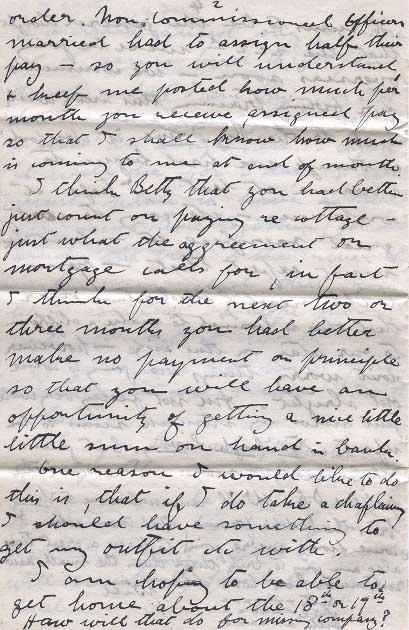 2
order. Non. Commissioned Officers
married had to assign half their
pay – so you will understand,
& keep me posted how much per
month you receive assigned pay
so that I shall know how much
is coming to me at end of month.
I think Betty that you had better
just count on paying re cottage –
just what the aggreement on
mortgage calls for, in fact
I think for the next two or
three months you had better
make no payment on principle
so that you will have an
opportunity of getting a nice little
little sum on hand in bank.
One reason I would like to do
this is, that if I do take a chaplaincy
I should have something to
get my outfit etc with.
I am hoping to be able to
get home about the 18th or 19th
How will that do for missing company?